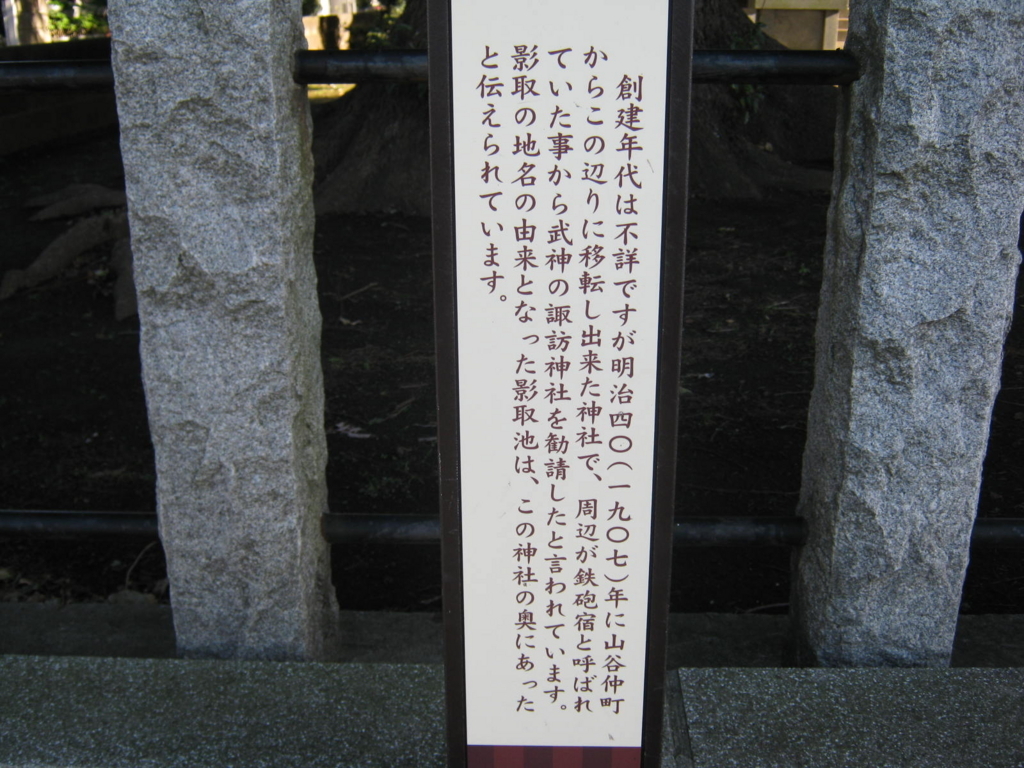 創建年代は不詳ですが明治四〇(一九〇七)年に山谷仲町
からこの辺りに移転し出来た神社で、周辺が鉄砲宿と呼ばれ
ていた事から武神の諏訪神社を勧請したと言われています。
影取の地名の由来となった影取池は、この神社の奥にあった
と伝えられています。